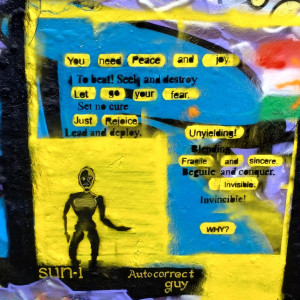 You need Peace and joy.
To beat! Seek and destroy
Let go your fear.
Set no cure
Just Rejoice.
Lead and deploy.
Unyielding!
Blending
Fragile and sincere.
Beguile and conquer.
Invisible.
Invincible!
WHY?
sun-1
Autocorrect
guy